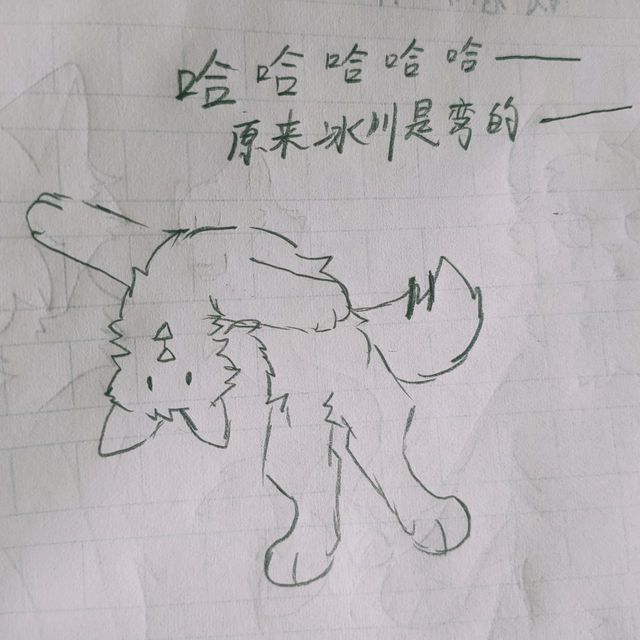 哈哈哈哈哈——
原来冰川是弯的——